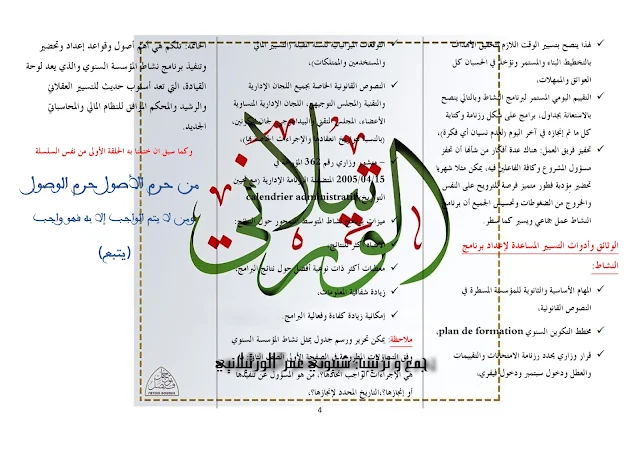 لهذا ينصح بتسيير الوقت اللازم لتحقيق الأهداف
بالتخطيط البناء والمستمر وتؤخذ في الحسبان كل
العوائق والممهلات،
التقييم اليومي المستمر لبرنامج النشاط وبالتالي ينصح
بالاستعانة بجداول، برامج على شكل رزنامة وكتابة
كل ما تم إنجازه في آخر اليوم (لعدم نسيان أي فكرة)،
تحفيز فريق العمل: هناك عدة أفكار من شأنها أن تحفز
مسؤول المشروع وكافة الفاعلين فيه، يمكن مثلا شهريا
تحضير مؤدبة فطور متميز فرصة للترويح على النفس
والخروج من الضغوطات وتحسيس الجميع أن برنامج
النشاط عمل جماعي ويسير كما سطر.
الوثائق وأدوات التسيير المساعدة لإعداد برنامج
النشاط:
المهام الأساسية والثانوية للمؤسسة المسطرة في
النصوص القانونية،
مخطط التكوين السنوي plan de formation،
قرار وزاري يحدد رزنامة الامتحانات والتقييمات
والعطل ودخول سبتمبر ودخول فيفري،
التوقعات الميزانياتية للسنة المقبلة (التسيير المالي
والمستخدمين والممتلكات)،
النصوص القانونية الخاصة بجميع اللجان الإدارية
والتقنية (المجلس التوجيهي، اللجان الإدارية المتساوية
الأعضاء، المجلس التقني والبيداغوجي
منشور وزاري رقم 362
2005/04/15 المتضمنة
calendrier administratif
النشاط المتوسط
معطيات أكثر ذات نوعية أفضل حول نتائج البرامج،
زيادة شفافية المعلومات،
إمكانية زيادة كفاءة وفعالية البرامج.
ملاحظة: يمكن تحرير ورسم جدول يمثل نشاط المؤسسة السنوي
هي الإجراءات الواجب اتخاذها؟، من هو المسؤول عن تنفيذها
أو إنجازها؟، التاريخ المحدد لإنجازها؟،
الخاتمة: تلكم هي أهم أصول وقواعد إعداد وتحضير
وتنفيذ برنامج نشاط المؤسسة السنوي والذي يعد لوحة
القيادة، التي تعد أسلوب حديث للتسيير العقلاني
والرشيد والمحكم المرافق للنظام المالي والمحاسباتي
الجديد.
وكما سبق ان ختمنا به الحلقة الأولى من نفس السلسلة
من حرم الأصول حرم الوصول
ومن لا يتم الواجب إلا به فهو واجب
(يتبع)
الورتيلاني
جمع و ترتيب: شتاوني عمر الورتيلاني
4